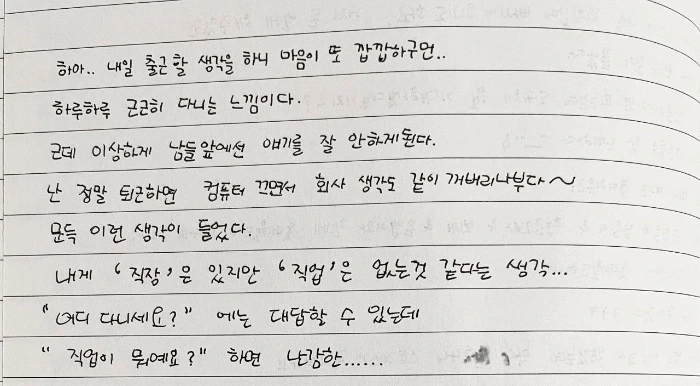 하아.. 내일 출근할 생각을 하니 마음이 또 깝깝하구먼..
하루하루 근근히 다니는 느낌이다.
근데 이상하게 남들앞에선 얘기를 잘 안하게된다.
난 정말 퇴근하면 컴퓨터 끄면서 회사 생각도 같이 꺼버리나부다~
문득 이런 생각이 들었다.
내게 '직장'은 있지만 '직업'은 없는것 같다는 생각...
"어디 다니세요?" 에는 대답할 수 있는데
"직업이 뭐예요?" 하면 난감한......